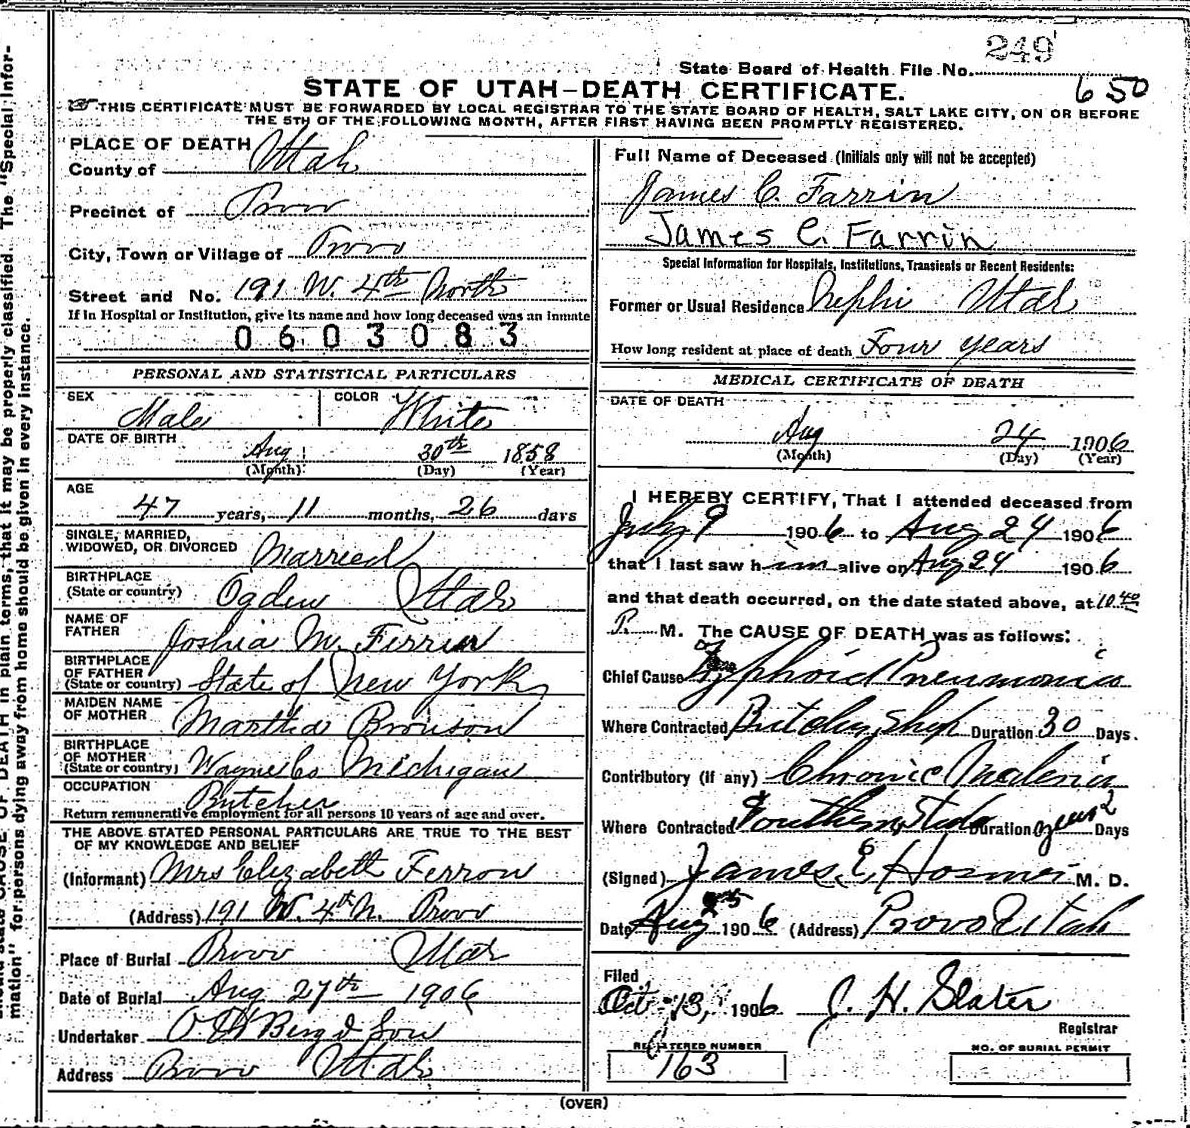 249
State Board of Health File No.
650
STATE OF UTAH—DEATH CERTIFICATE.
THIS CERTIFICATE MUST BE FORWARDED BY LOCAL REGISTRAR TO THE STATE BOARD OF HEALTH, SALT LAKE CITY, ON OR BEFORE
THE 5TH OF THE FOLLOWING MONTH, AFTER FIRST HAVING BEEN PROMPTLY REGISTERED.
PLACE OF DEATH
County of Utah
Precinct of Provo
City, Town or Village of Provo
Street and No. 191 W. 4th North
If in Hospital or Institution, give its name and how long deceased was an inmate
0603083
PERSONAL AND STATISTICAL PARTICULARS
SEX Male COLOR White
DATE OF BIRTH Aug 30th 1858
(Month) (Day) (Year)
AGE
47 years, 11 months, 26 days
SINGLE, MARRIED,
WIDOWED, OR DIVORCED Married
BIRTHPLACE
(State or country) Ogden Utah
NAME OF
FATHER Joshia M. Ferrin
BIRTHPLACE
OF FATHER
(State or country) State of New York
MAIDEN NAME
OF MOTHER Martha Bronson
BIRTHPLACE
OF MOTHER
(State or country) Wayne Co Michigan
OCCUPATION Butcher
Return remunerative employment for all persons 10 years of age and over.
THE ABOVE STATED PERSONAL PARTICULARS ARE TRUE TO THE BEST
OF MY KNOWLEDGE AND BELIEF
(Informant) Mrs Elizabeth Ferron
(Address) 191 W. 4th N. Provo
Place of Burial Provo Utah
Date of Burial Aug 27th 1906
Undertaker O H Berg & Son
Address Provo Utah
Full Name of Deceased (Initials only will not be accepted)
James C. Farrin
James C. Farrin
Special Information for Hospitals, Institutions, Transients or Recent Residents:
Former or Usual Residence Nephi Utah
How long resident at place of death Four years
MEDICAL CERTIFICATE OF DEATH
DATE OF DEATH
Aug 24 1906
(Month) (Day) (Year)
I HEREBY CERTIFY, That I attended deceased from
July 9 1906 to Aug 24 1906
that I last saw him alive on Aug 24 1906
and that death occurred, on the date stated above, at 10.40
P. M. The CAUSE OF DEATH was as follows:
Chief Cause Typhoid Pneumonia
Where Contracted Butcher Shop Duration 30 Days.
Contributory (if any) Chronic Malaria
Where Contracted Southern States Duration 2 years Days
(Signed) James E Hosmer M. D.
Date Aug 25 1906 (Address) Provo Utah
Filed
Oct 13, 1906 J. H. Slater
Registrar
REGISTERED NUMBER
163
NO. OF BURIAL PERMIT
(OVER)
mation" for persons dying away from home should be given in every instance.
CAUSE OF DEATH in plain terms, that it may be properly classified. The "Special Infor-